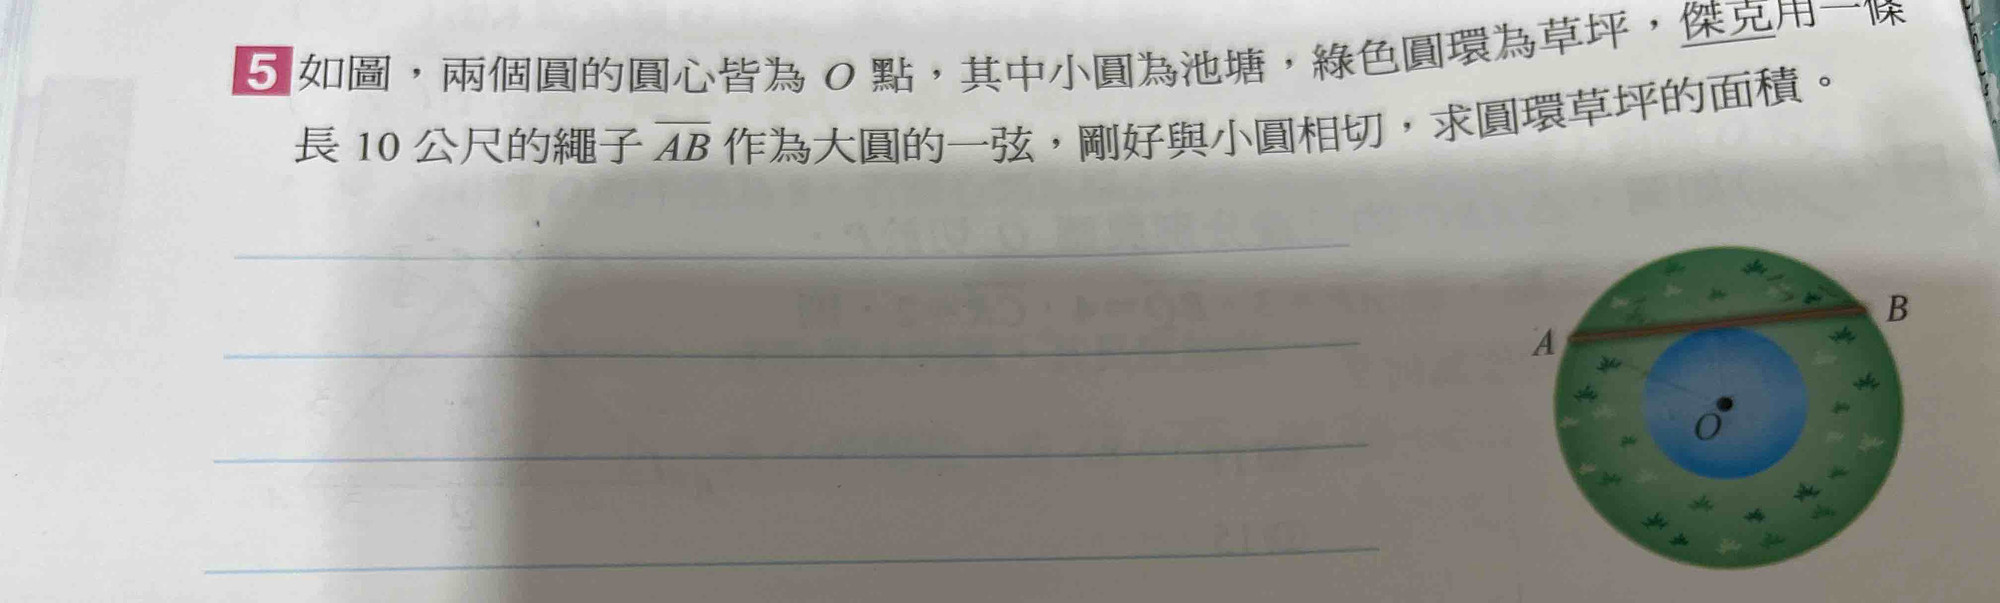 5 如圖，兩個圓的圓心皆為 O 點，其中小圓為池塘，綠色圓環為草坪，傑克用一條
長 10 公尺的繩子 AB 作為大圓的一弦，剛好與小圓相切，求圓環草坪的面積。
B
A
O